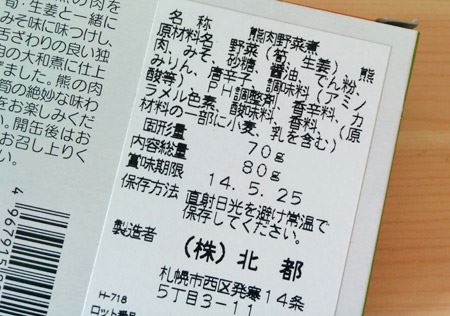 の肉
筍・生姜と一緒に
みそに味つけし、
舌ざわりの良い独
自の大和煮に仕上
ました。熊の肉
筍の絶妙な味わ
をお楽しみくだ
い。開缶後はお
お召し上りく
い。
名 称 熊肉野菜煮
原材料名 野菜(筍、生姜)、熊
肉、みそ、砂糖、醤油、でん粉、
みりん、唐辛子、調味料(アミノ
酸等)、PH調整剤、香辛料、カ
ラメル色素、酸味料、香料、(原
材料の一部に小麦、乳を含む)
固形量 70g
内容総量 80g
賞味期限 14.5.25
保存方法 直射日光を避け常温で
保存してください。
製造者
(株)北都
札幌市西区発寒14条
5丁目3-11
H-718
ロット番号
4 967915